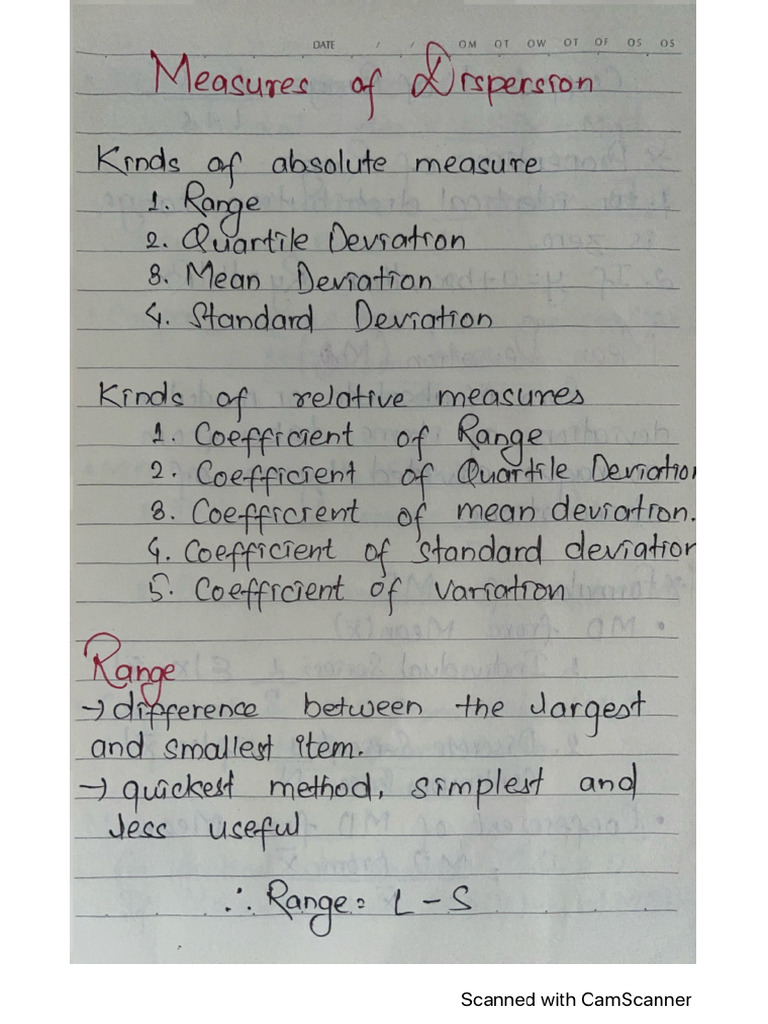 DATE / / OM OT OW OT OF OS OS
Measures of Dispersion
Kinds of absolute measure
1. Range
2. Quartile Deviation
3. Mean Deviation
4. Standard Deviation
Kinds of relative measures
1. Coefficient of Range
2. Coefficient of Quartile Deviation
3. Coefficient of mean deviation.
4. Coefficient of standard deviation
5. Coefficient of variation
Range
→ difference between the largest
and smallest item.
→ quickest method, simplest and
less useful
∴ Range = L - S
Scanned with CamScanner